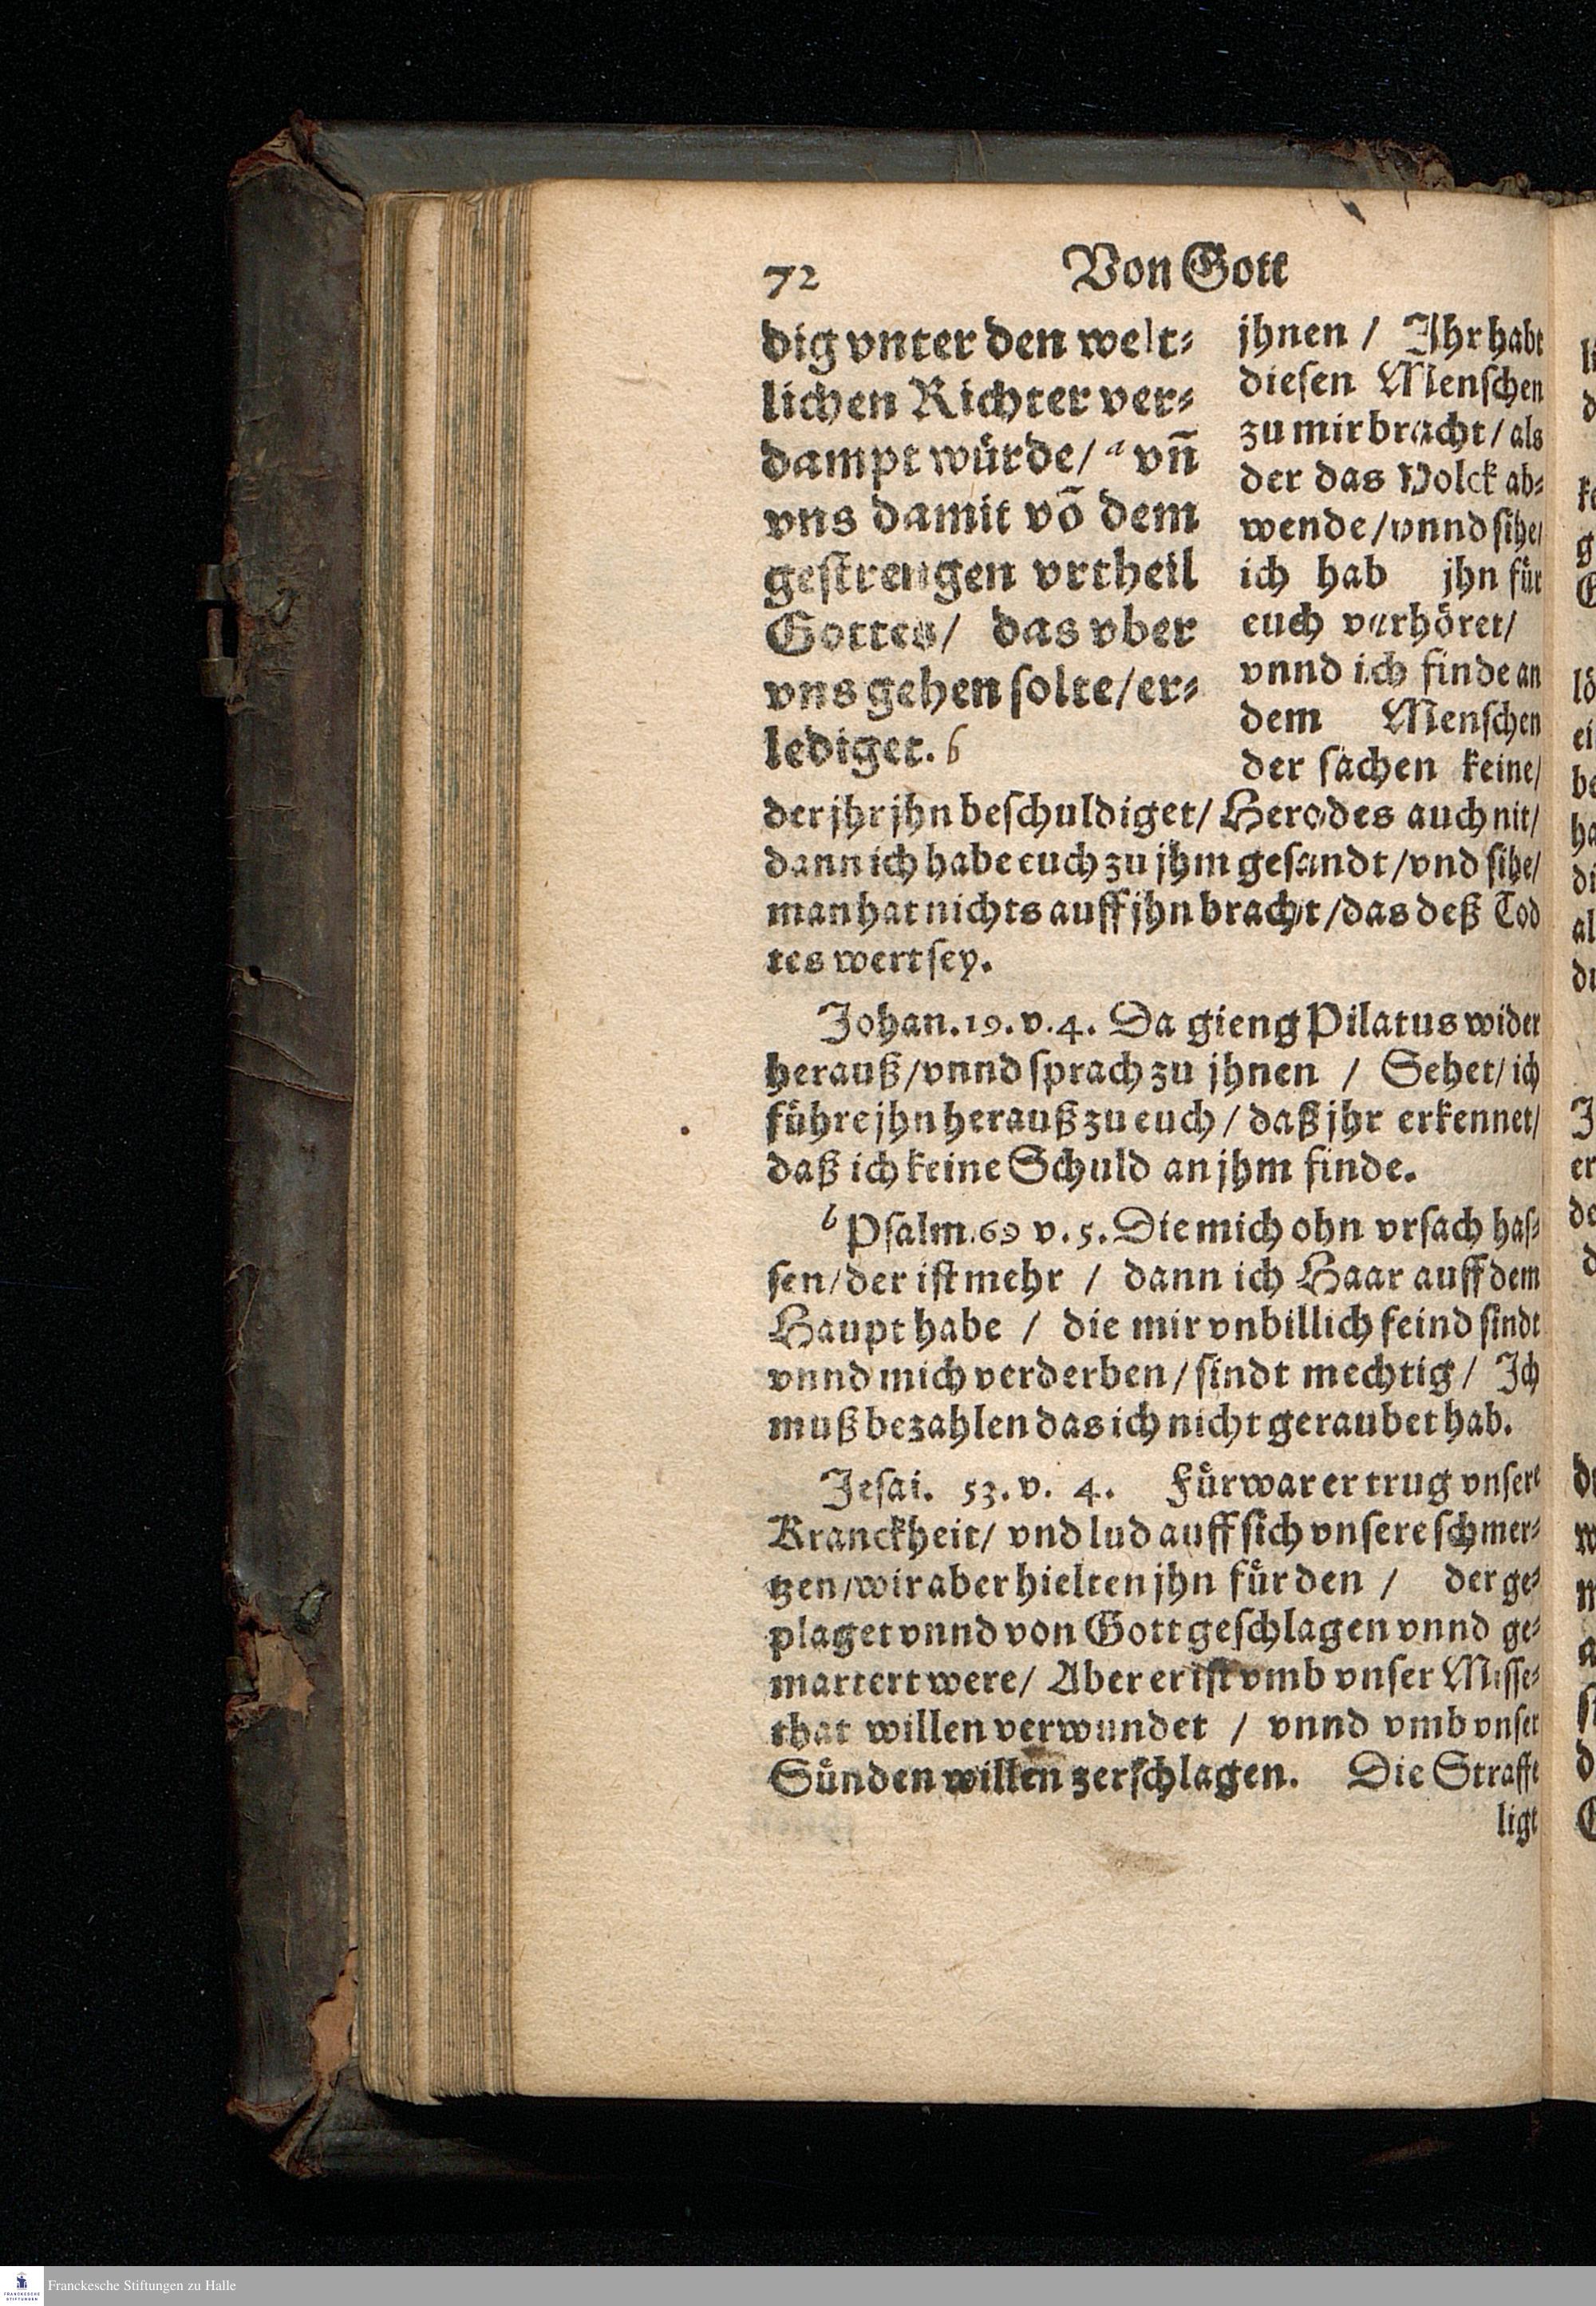 72 Von Gott
dig vnter den welt⸗
lichen Richter ver⸗
dampt würde/ a vñ
vns damit võ dem
gestrengen vrtheil
Gottes/ das vber
vns gehen solte/er⸗
lediget. b
jhnen / Ihr habt
diesen Menschen
zu mir bracht/als
der das Volck ab⸗
wende/vnnd sihe/
ich hab jhn für
euch verhöret/
vnnd ich finde an
dem Menschen
der sachen keine/
der jhr jhn beschuldiget/ Herodes auch nit/
dann ich habe euch zu jhm gesandt/vnd sihe/
man hat nichts auff jhn bracht/das deß Tod
tes wert sey.
Johan.19.v.4. Da gieng Pilatus wider
herauß/vnnd sprach zu jhnen / Sehet/ich
führe jhn herauß zu euch/daß jhr erkennet/
daß ich keine Schuld an jhm finde.
b Psalm.69 v.5. Die mich ohn vrsach has⸗
sen/der ist mehr / dann ich Haar auff dem
Haupt habe / die mir vnbillich feind sindt
vnnd mich verderben/sindt mechtig/ Ich
muß bezahlen das ich nicht geraubet hab.
Jesai. 53.v. 4. Fürwar er trug vnsere
Kranckheit/ vnd lud auff sich vnsere schmer⸗
tzen/wir aber hielten jhn für den / der ge⸗
plaget vnnd von Gott geschlagen vnnd ge⸗
martert were/ Aber er ist vmb vnser Misse⸗
that willen verwundet / vnnd vmb vnser
Sünden willen zerschlagen. Die Straffe
ligt
Franckesche Stiftungen zu Halle